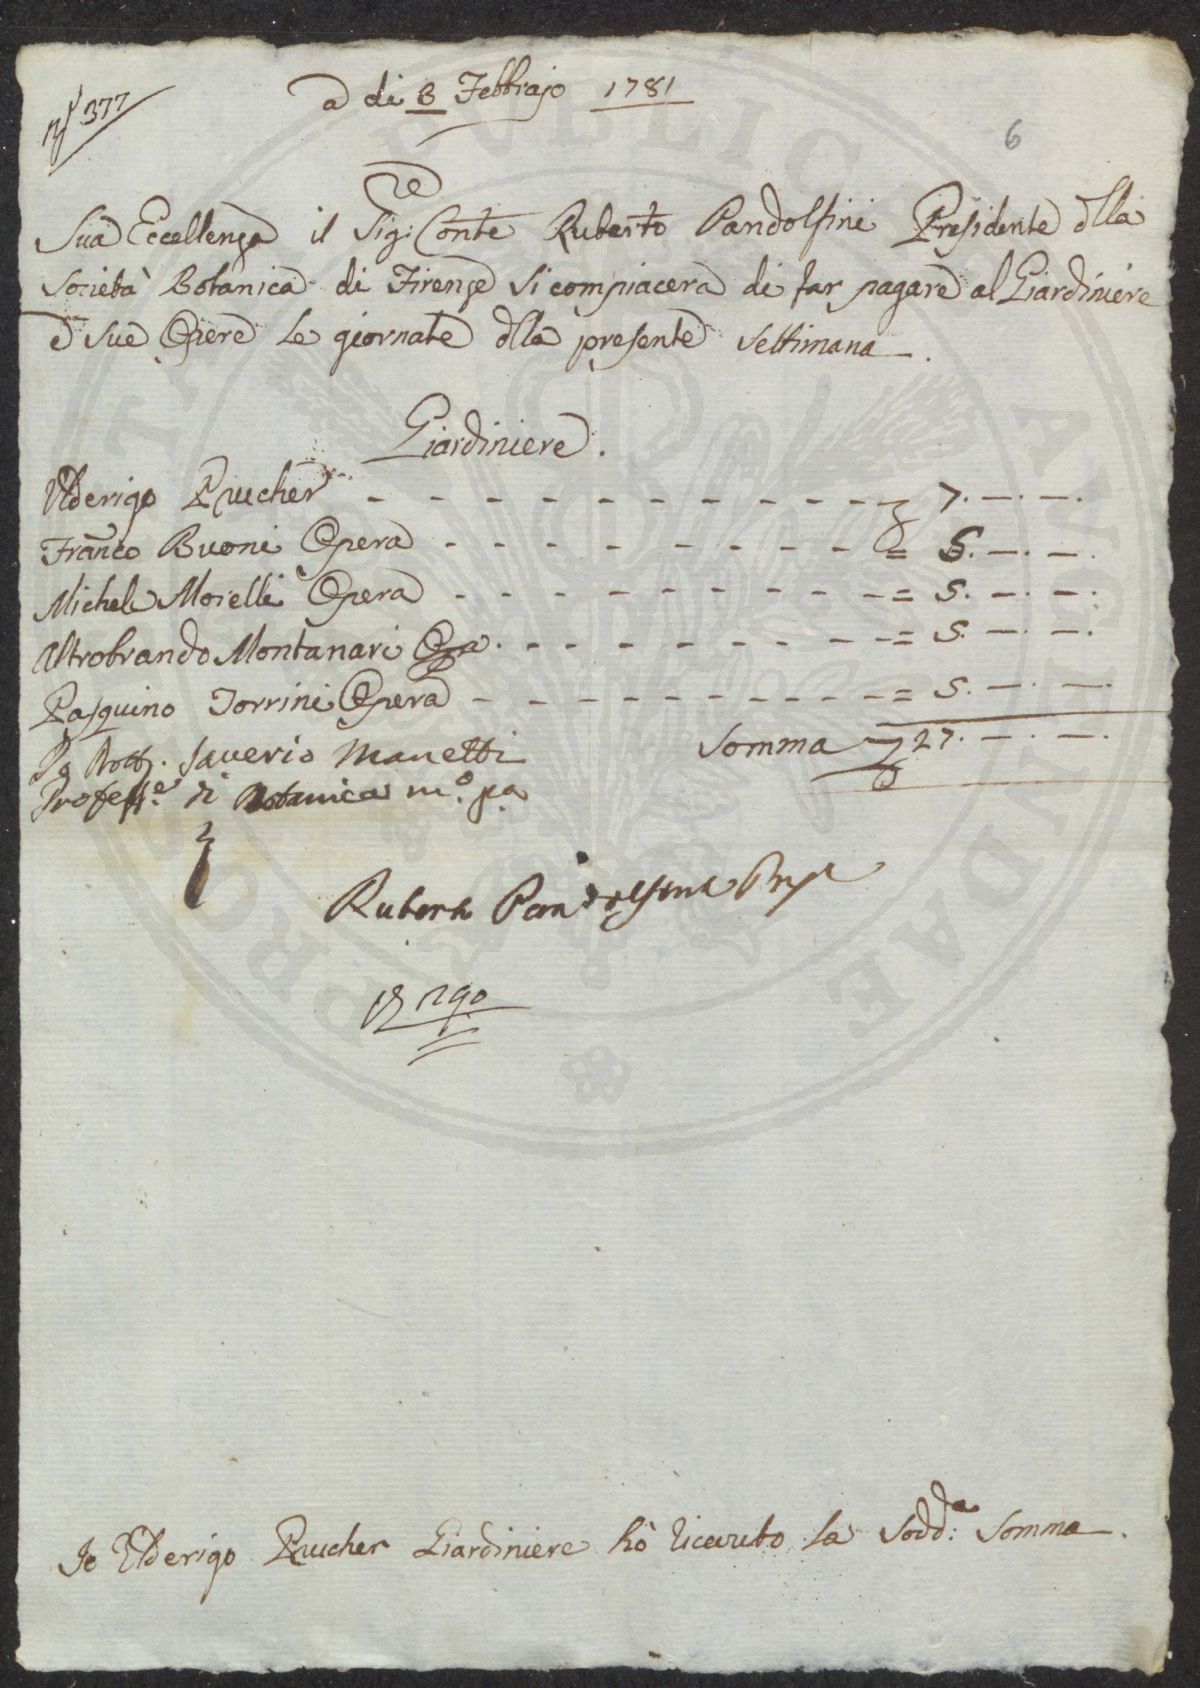 N.° 377
a di 3 Febbrajo 1781
6
Sua Eccellenza il Sig:re Conte Ruberto Pandolfini Presidente dlla
Società Botanica di Firenze si compiacerà di far pagare al Giardiniere
e sue Opere le giornate dlla presente settimana.
Giardiniere.
Ulderigo Prucher - - - - - - - - - - - 7. —. —.
Franco Buoni Opera - - - - - - - - = 5. —. —.
Michele Morelli Opera - - - - - - - - - = 5. —. —.
Altrobrando Montanari Opa. - - - - - - - = 5. —. —.
Pasquino Torrini Opera - - - - - - - - - = 5. —. —.
Somma 27. —. —.
Dott. Saverio Manetti
Profess.e di Botanica m.° p.a
Ruberto Pandolfini Pres
290
Io Ulderigo Prucher Giardiniere hò ricevuto la Sodd:a Somma.